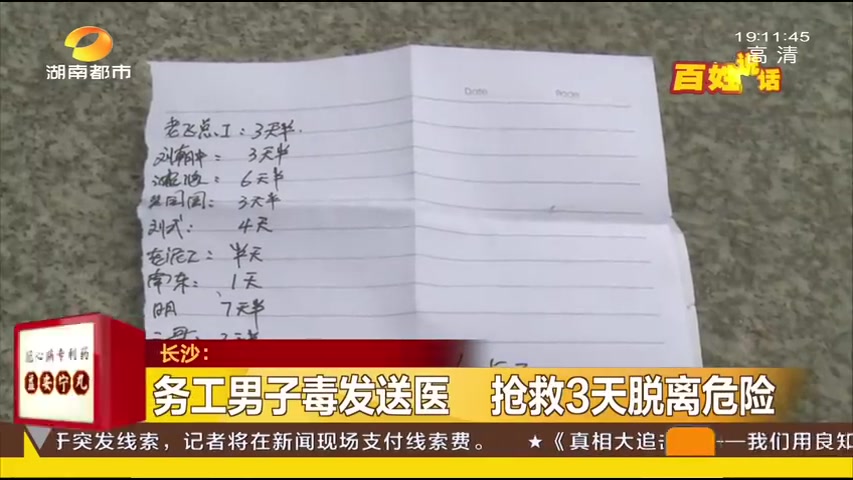 湖南都市
19:11:45
高清
百姓说话
Date Page
老飞总工：3天半
刘朝中： 3天半
6天半
3天半
刘式： 4天
半天
南东： 1天
明 7天半
冠心病专利药
益安宁丸
长沙：
务工男子毒发送医 抢救3天脱离危险
于突发线索，记者将在新闻现场支付线索费。 ★《真相大追击 —我们用良知